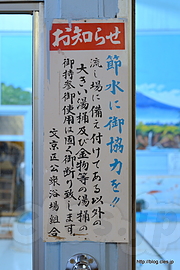 お知らせ
節水に御協力を!!
流し場に備え付けてある以外の
大きい湯桶及び金物等の湯桶の
御持参御使用は固く御断り致します。
文京区公衆浴場組合
http://blog.cles.jp